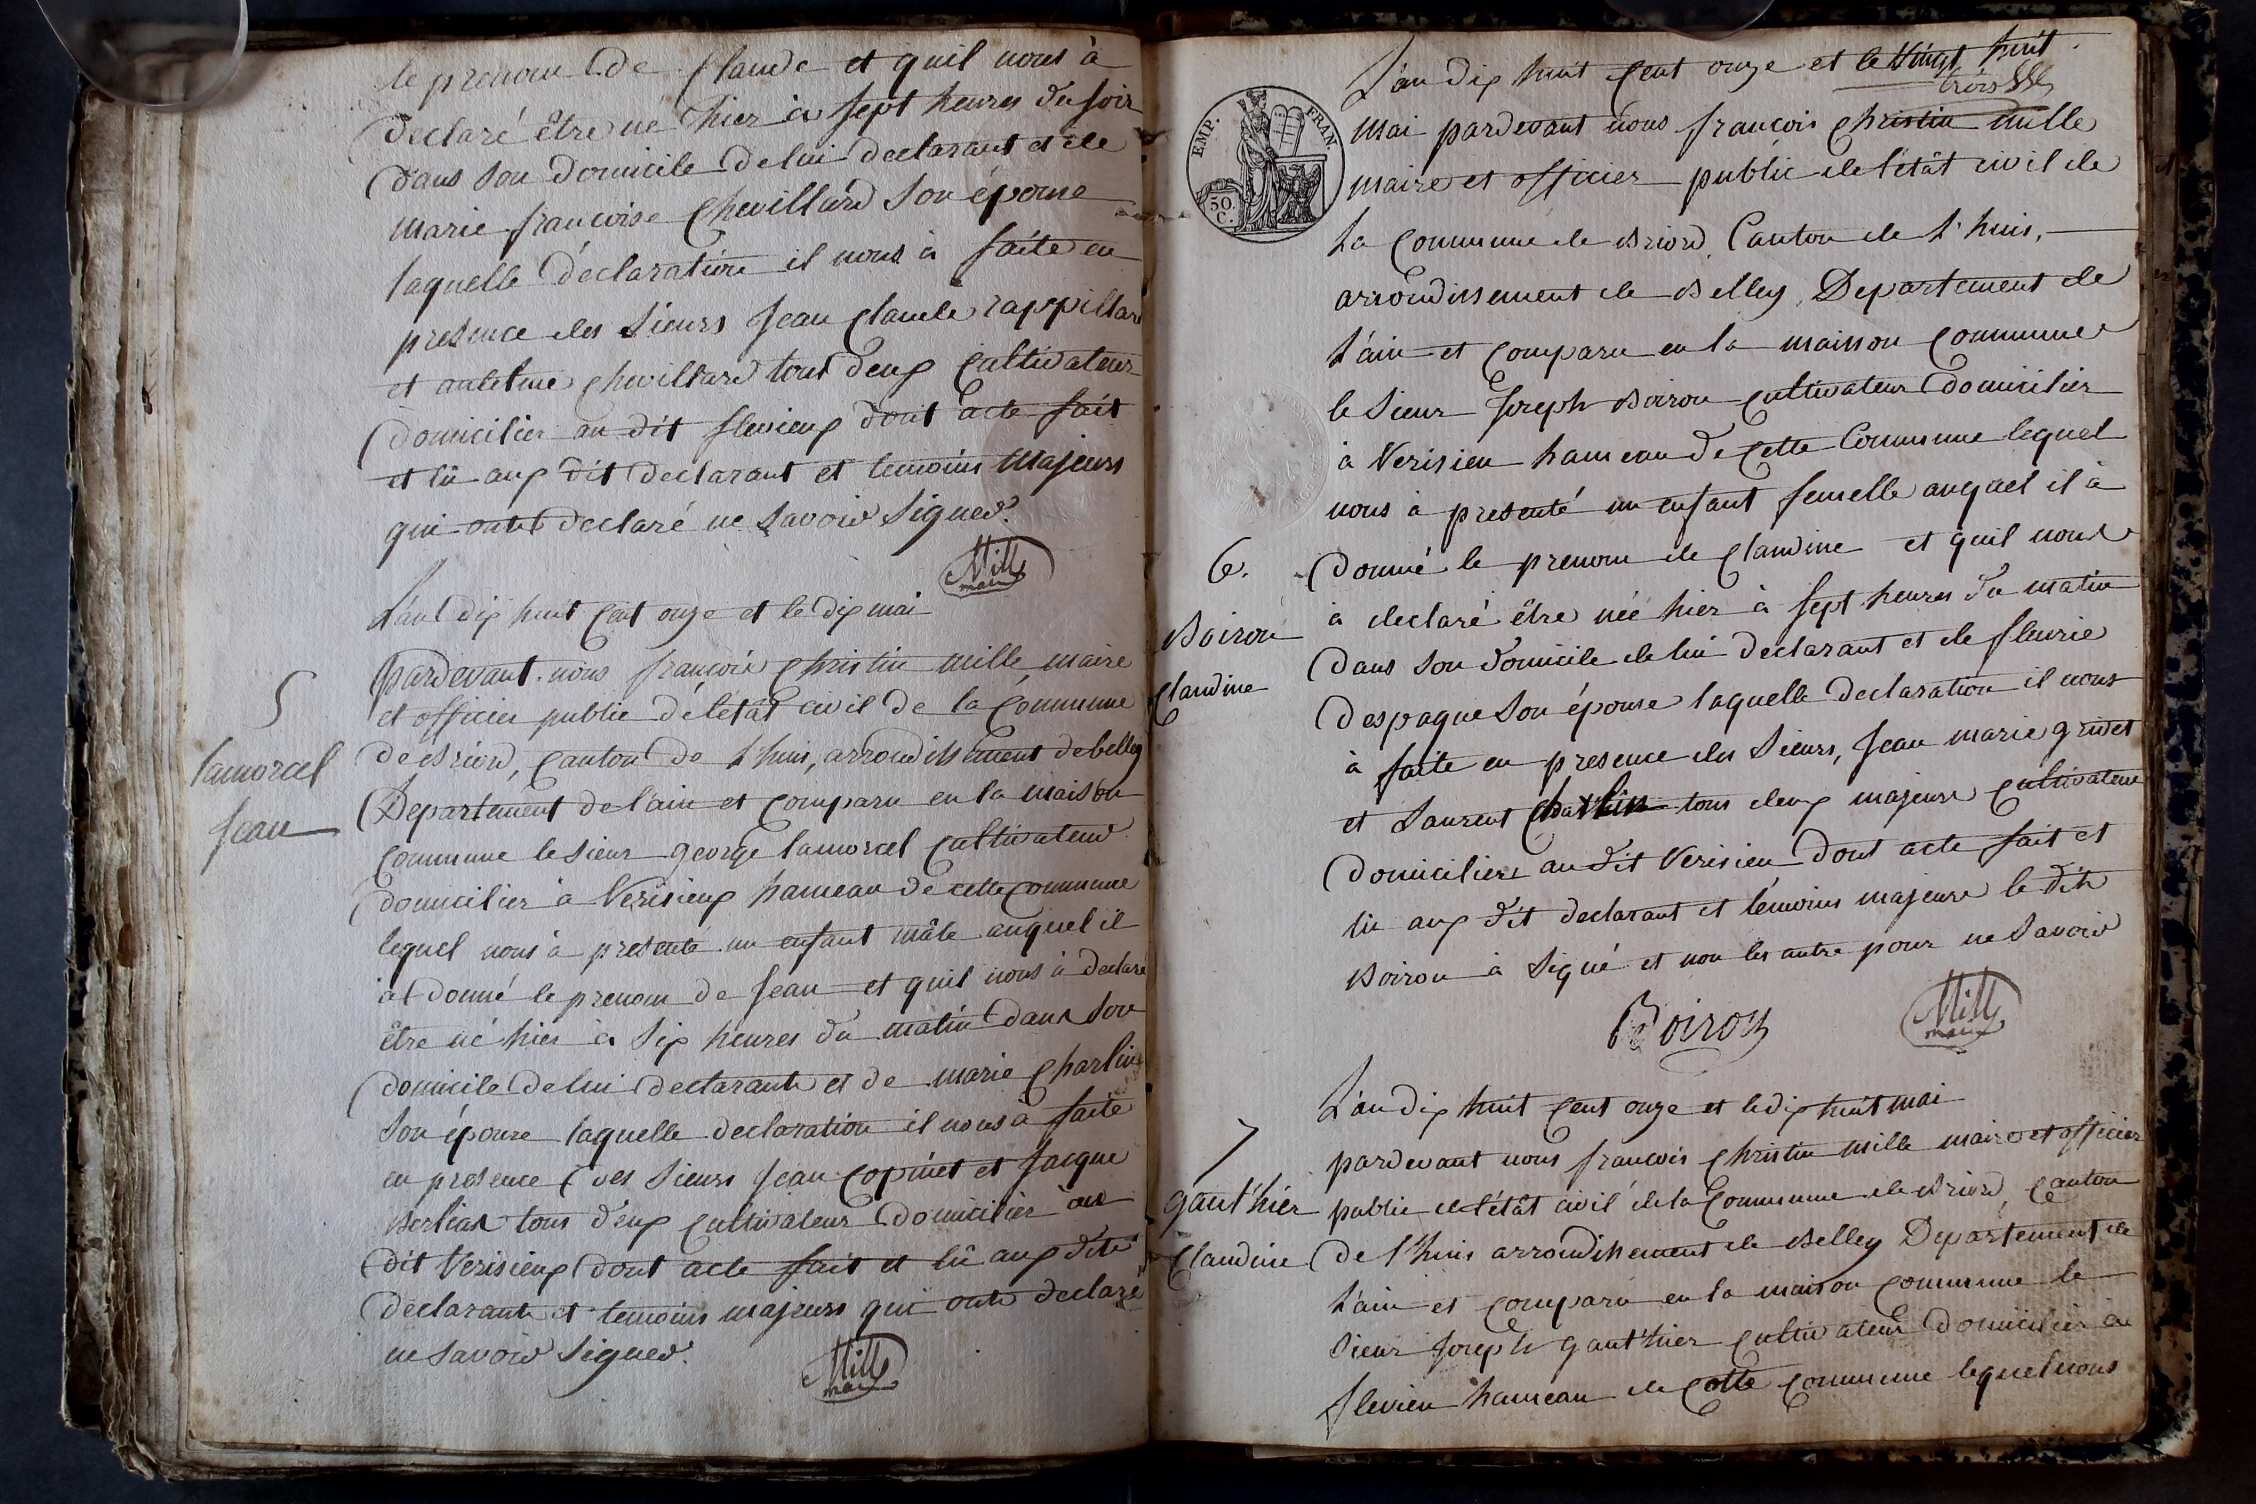 le prenom de Claude et quil nous à
declaré être né hier à sept heures du soir
dans son domicile de lui declarant et de
marie francoise Chevillard son épouse
laquelle déclaration il nous à faite en
presence des Sieurs Jean Claude rappillard
et antelme chevillard tous deux cultivateur
domicilier au dit flevieux dont acte fait
et lû aux dit declarant et temoins Majeurs
qui onts declaré ne savoir signer.
Mille
maire
L'an dix huit cent onze et le dix mai
5
pardevant nous francois christin mille maire
et officier public de létât civil de la Commune
lamorcel
de Briord, canton de l'huis, arrondissement de belley
Departement de l'ain et comparu en la maison
Jean
commune le sieur george lamorcel cultivateur
domicilier à Verisieux hameau de cette commune
lequel nous à presenté un enfant mâle auquel il
at donné le prenom de Jean et quil nous à declaré
être né hier à six heures du matin dans son
domicile de lui declarants et de marie charlin
son épouse laquelle declaration il nous à faite
en presence des sieurs Jean Copinet et Jacque
Berlion tous deux cultivateurs domicilier au
dit Verisieux dont acte fait et lû aux dits
declarants et temoins majeurs qui onts declaré
ne savoir signer.
Mille
maire
EMP. FRAN.
50.
C.
L'an dix huit cent onze et le Vingt huit
trois
Mai pardevant nous francois christin mille
maire et officier public de létât civil de
La Commune de Briord, Canton de L'huis,
arrondissement de Belley, Departement de
L'ain et comparu en la maison commune
le Sieur Joseph Boiron cultivateur domicilier
à Verisieu hameau de cette Commune lequel
nous à presenté un enfant femelle auquel il à
6.
donné le prenom de claudine et quil nous
à declaré être née hier à sept heures du matin
Boiron
dans son domicile de lui declarant et de fleurie
Claudine
despagne son épouse laquelle declaration il nous
à faite en presence des Sieurs, Jean marie grivet
et Laurent Charlin tous deux majeurs cultivateur
domicilier au dit Verisieu dont acte fait et
lû aux dit declarant et témoins majeurs le dit
Boiron à signé et non les autre pour ne savoir
Boiron
Mille
maire
L'an dix huit cent onze et le dix huit mai
7
pardevant nous francois christin mille maire et officier
gaut'hier
public de létât civil de la Commune de Briord, Canton
Claudine
de l'huis arrondissement de Belley Departement de
L'ain et comparu en la maison commune le
Sieur Joseph gaut'hier cultivateur domicilier à
flevieu hameau de cette commune lequel nous